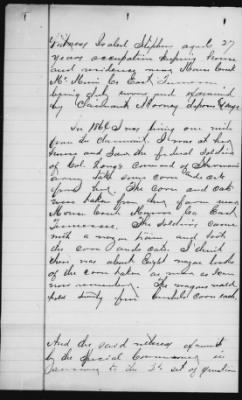 Witness Isabel Stephens aged 27
years occupation keeping house
and residence near Mouse Creek
Mc Minn Co East Tennessee
being duly sworn and examined
by Claimants Attorney deposes & says
In 1864 I was living one mile
from the claimant. I was at her
house and saw the federal soldiers
of Col. Long's command of Sherman's
army take some corn and oats
from her. The corn and oats
was taken from her farm near
Mouse Creek McMinn Co East
Tennessee. The soldiers came
with a wagon train and took
the corn and oats. I think
there was about Eight wagon loads
of the corn taken as near as I can
now remember. The wagons would
hold twenty five bushels corn each.
And the said witness examined
by the Special Commissioner in
answering to the 3d set of question